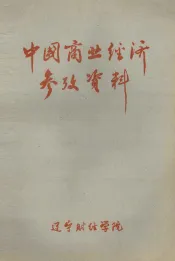 中國商业经济
参考资料
辽宁财经学院